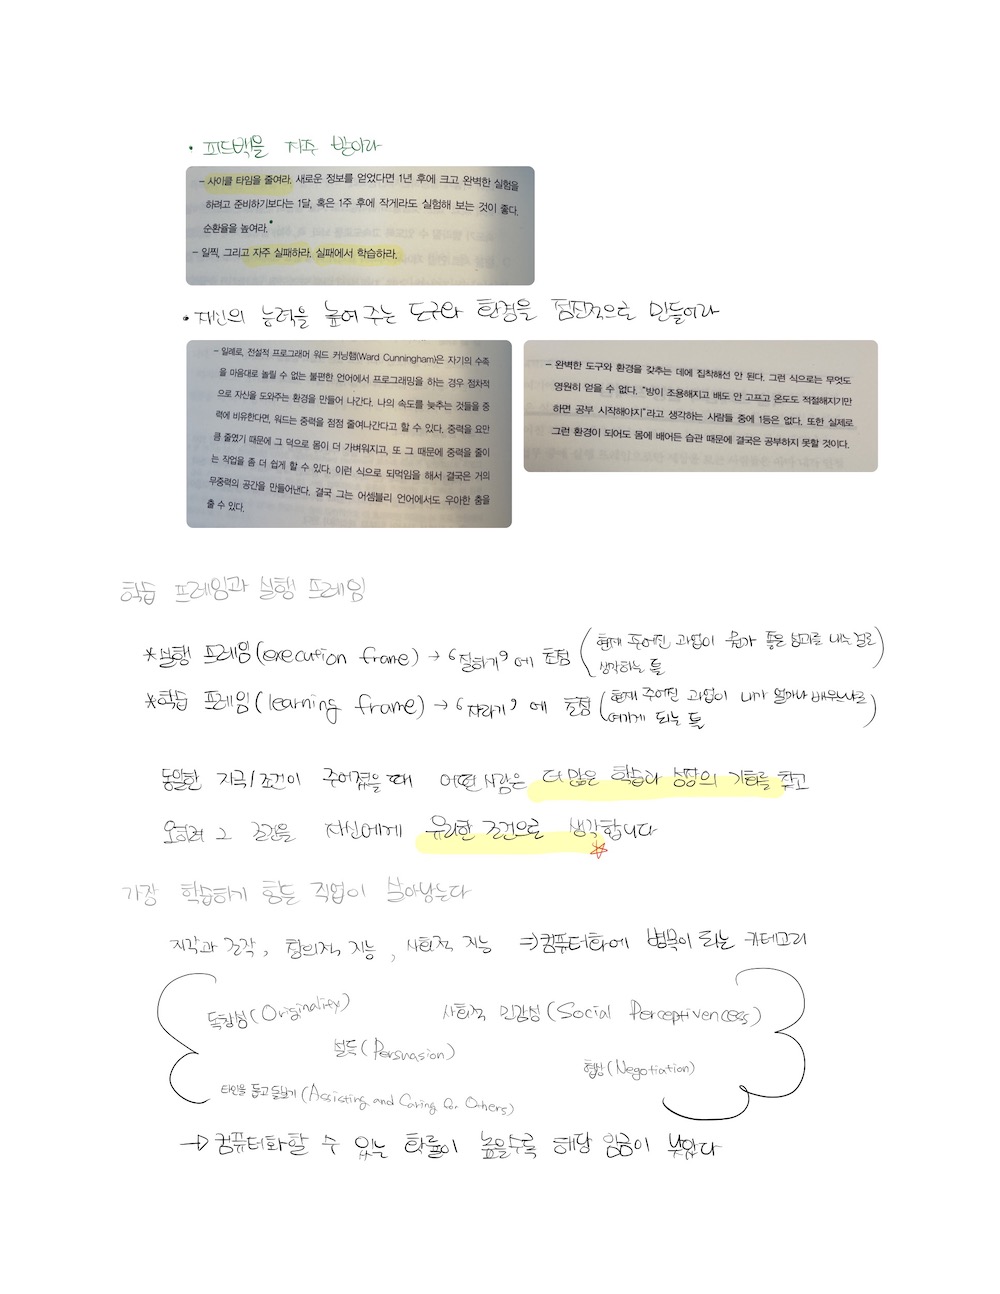 • 피드백을 자주 받아라
- 사이클 타임을 줄여라. 새로운 정보를 얻었다면 1년 후에 크고 완벽한 실험을
하려고 준비하기보다는 1달, 혹은 1주 후에 작게라도 실험해 보는 것이 좋다.
순환율을 높여라.
- 일찍, 그리고 자주 실패하라. 실패에서 학습하라.
• 자신의 능력을 높여 주는 도구와 환경을 점진적으로 만들어라
- 일례로, 전설적 프로그래머 워드 커닝햄(Ward Cunningham)은 자기의 수족
을 마음대로 놀릴 수 없는 불편한 언어에서 프로그래밍을 하는 경우 점차적
으로 자신을 도와주는 환경을 만들어 나간다. 나의 속도를 늦추는 것들을 중
력에 비유한다면, 워드는 중력을 점점 줄여나간다고 할 수 있다. 중력을 요만
큼 줄였기 때문에 그 덕으로 몸이 더 가벼워지고, 또 그 때문에 중력을 줄이
는 작업을 좀 더 쉽게 할 수 있다. 이런 식으로 되먹임을 해서 결국은 거의
무중력의 공간을 만들어낸다. 결국 그는 어셈블리 언어에서도 우아한 춤을
출 수 있다.
- 완벽한 도구와 환경을 갖추는 데에 집착해선 안 된다. 그런 식으로는 무엇도
영원히 얻을 수 없다. "방이 조용해지고 배도 안 고프고 온도도 적절해지기만
하면 공부 시작해야지"라고 생각하는 사람들 중에 1등은 없다. 또한 실제로
그런 환경이 되어도 몸에 배어든 습관 때문에 결국은 공부하지 못할 것이다.
학습 프레임과 실행 프레임
*실행 프레임(execution frame) → '잘하기'에 초점 (현재 주어진 과업이 뭔가 좋은 성과를 내는 걸로
생각하는 틀)
*학습 프레임(learning frame) → '자라기'에 초점 (현재 주어진 과업이 내가 얼마나 배우느냐로
여기게 되는 틀)
동일한 자극/조건이 주어졌을 때 어떤 사람은 더 많은 학습과 성장의 기회를 찾고
오히려 그 조건을 자신에게 유리한 조건으로 생각합니다
가장 학습하기 힘든 직업이 살아남는다
지각과 조작, 창의적 지능, 사회적 지능 ⇒ 컴퓨터화에 병목이 되는 카테고리
독창성(Originality)
사회적 민감성(Social Perceptiveness)
설득(Persuasion)
협상(Negotiation)
타인을 돕고 돌보기(Assisting and Caring for Others)
→ 컴퓨터화할 수 있는 확률이 높을수록 해당 임금이 낮았다